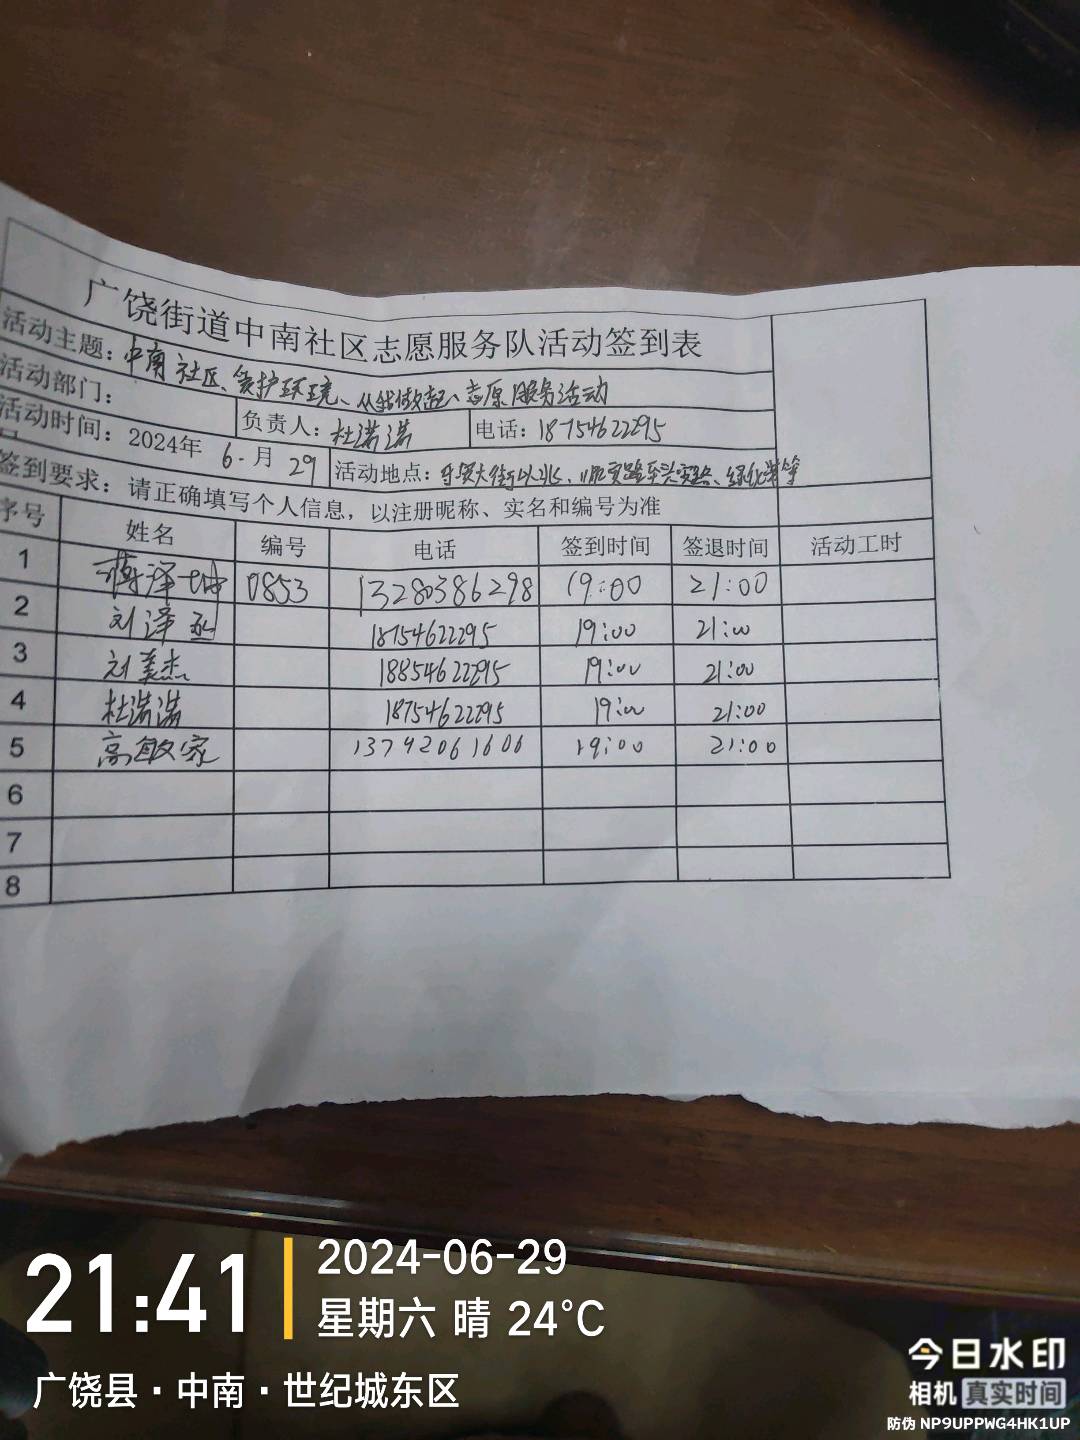 广饶街道中南社区志愿服务队活动签到表
活动主题：中南社区、爱护环境、从我做起、志愿服务活动
活动部门：
负责人：杜满满 电话：18754622295
活动时间：2024年 6.月 29
活动地点：乐安大街以北、
签到要求：请正确填写个人信息，以注册昵称、实名和编号为准
序号 姓名 编号 电话 签到时间 签退时间 活动工时
1 蒋泽坤 0853 13280386298 19:00 21:00
2 刘泽 18754622295 19:00 21:00
3 刘美杰 18854622295 19:00 21:00
4 杜满满 18754622295 19:00 21:00
5 高敏家 13792061606 19:00 21:00
6
7
8
21:41
2024-06-29
星期六 晴 24°C
广饶县·中南·世纪城东区
今日水印
相机 真实时间
防伪 NP9UPPWG4HK1UP